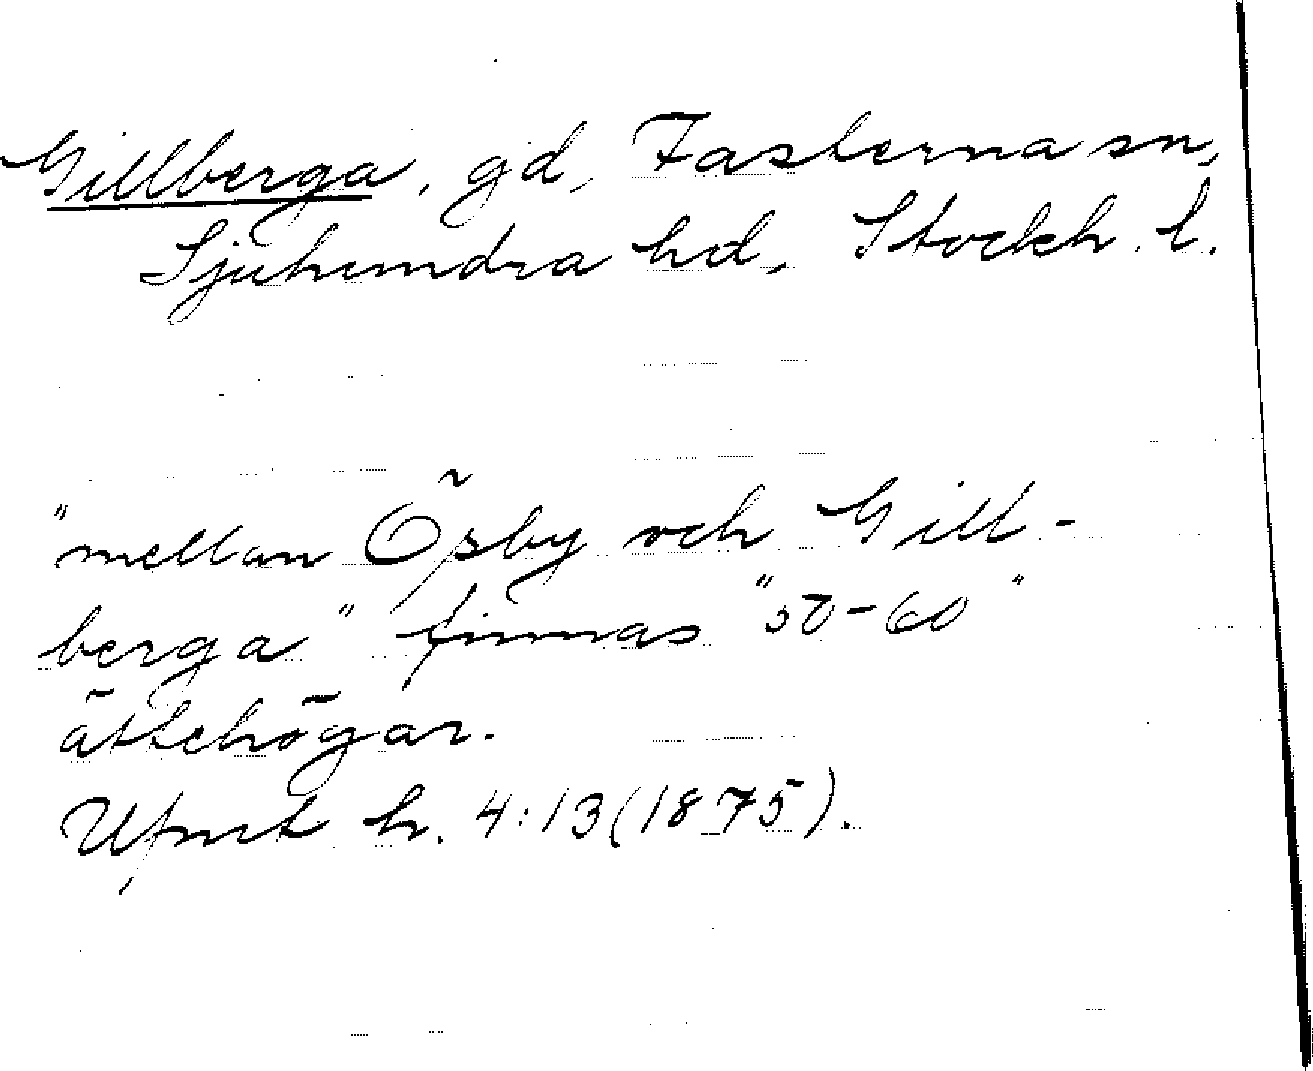 Gillberga, gd, Fasterna sn,
Sjuhundra hd, Stockh. l.
"mellan Ösby och Gill-
berga" finnas "50-60"
ättehögar.
Ufmt h. 4:13 (1875).